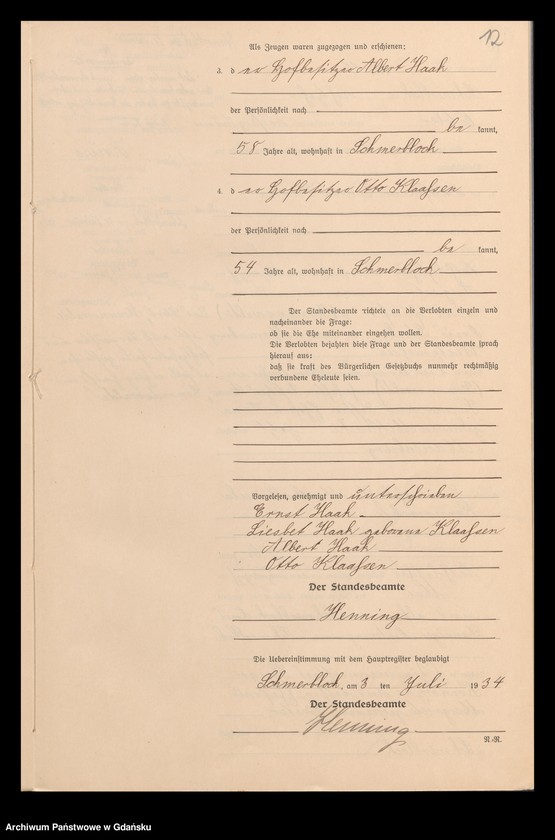 12
Als Zeugen waren zugezogen und erschienen:
3. der Hofbesitzer Albert Haak
der Persönlichkeit nach
be kannt,
58 Jahre alt, wohnhaft in Schmerblock
4. der Hofbesitzer Otto Klaaßen
der Persönlichkeit nach
be kannt,
54 Jahre alt, wohnhaft in Schmerblock
Der Standesbeamte richtete an die Verlobten einzeln und
nacheinander die Frage:
ob sie die Ehe miteinander eingehen wollen.
Die Verlobten bejahten diese Frage und der Standesbeamte sprach
hierauf aus:
daß sie kraft des Bürgerlichen Gesetzbuchs nunmehr rechtmäßig
verbundene Eheleute seien.
Vorgelesen, genehmigt und unterschrieben
Ernst Haak
Liesbet Haak geborene Klaaßen
Albert Haak
Otto Klaaßen
Der Standesbeamte
Henning
Die Uebereinstimmung mit dem Hauptregister beglaubigt
Schmerblock, am 3 ten Juli 1934
Der Standesbeamte
Henning
R.-R.
Archiwum Państwowe w Gdańsku